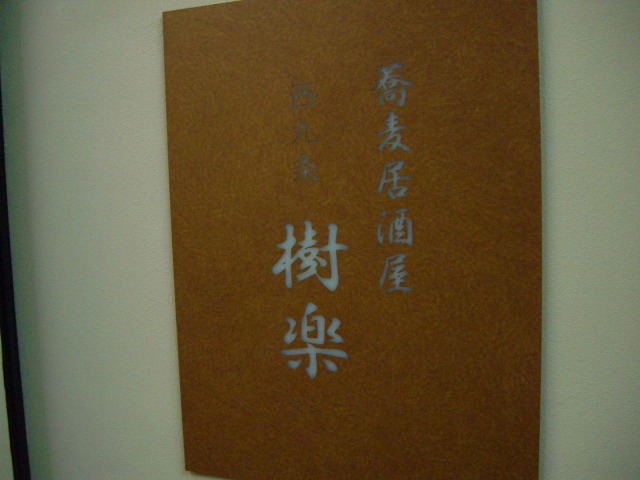 蕎麦居酒屋
西九条
樹楽